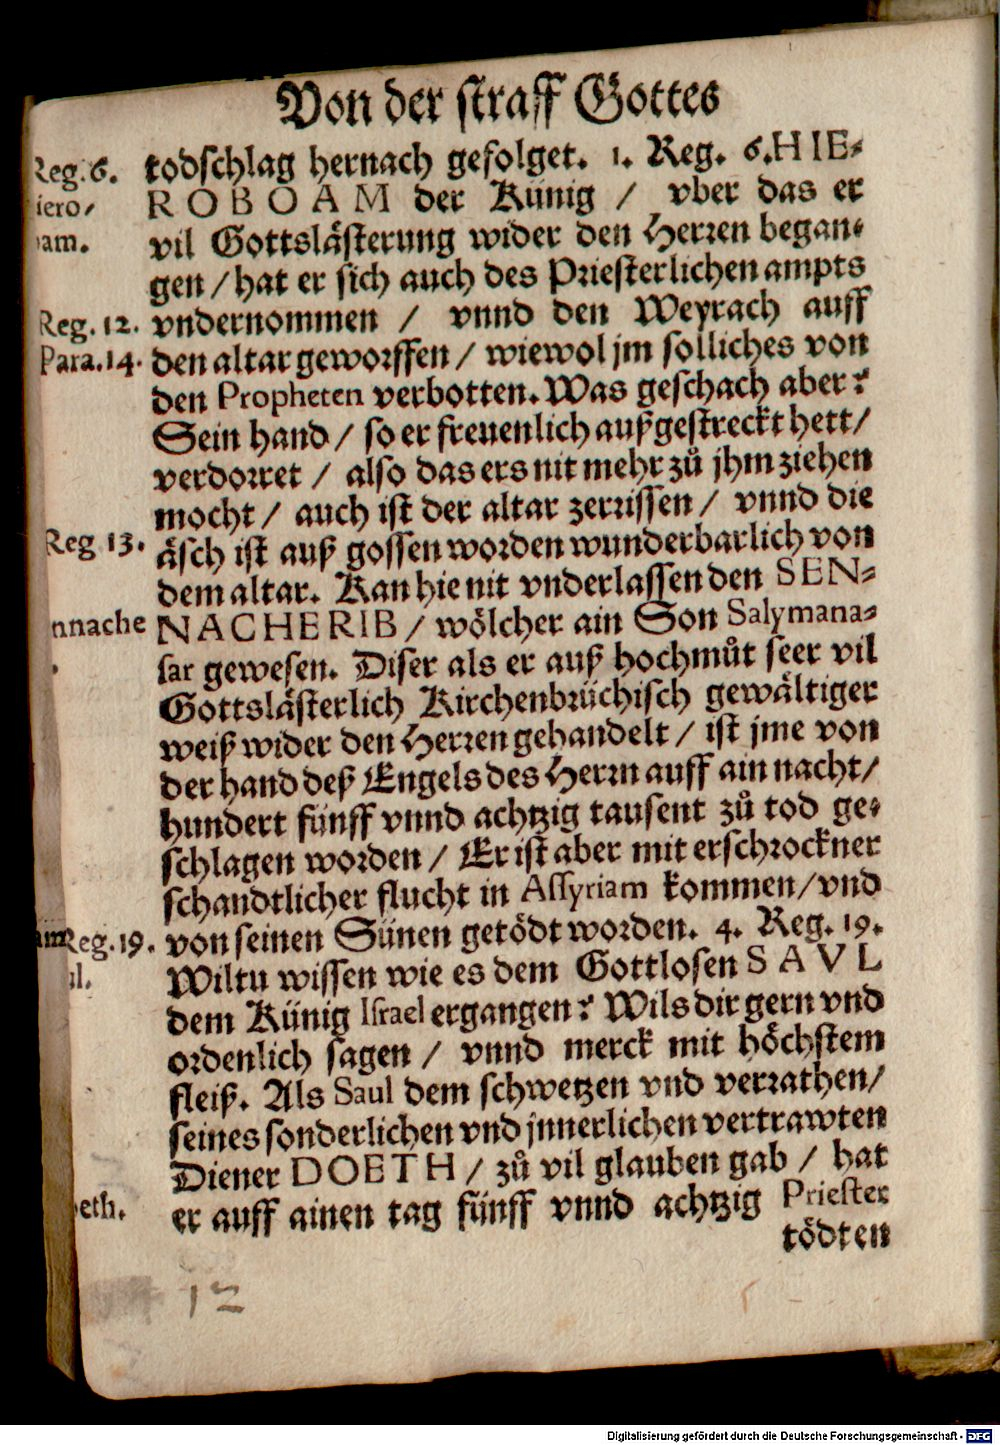 Von der straff Gottes
Reg. 6. todschlag hernach gefolget. 1. Reg. 6. HIE-
iero/ ROBOAM der Künig / vber das er
am. vil Gottslästerung wider den Herren began-
gen / hat er sich auch des Priesterlichen ampts
Reg. 12. vndernommen / vnnd den Weyrach auff
Para. 14. den altar geworffen / wiewol jm solliches von
den Propheten verbotten. Was geschach aber?
Sein hand / so er freuenlich außgestreckt hett /
verdorret / also das ers nit mehr zů jhm ziehen
mocht / auch ist der altar zerrissen / vnnd die
Reg 13. äsch ist auß gossen worden wunderbarlich von
dem altar. Kan hie nit vnderlassen den SEN-
nnache NACHERIB / wölcher ain Son Salymana-
sar gewesen. Diser als er auß hochmůt seer vil
Gottslästerlich Kirchenbrüchisch gewältiger
weiß wider den Herren gehandelt / ist jme von
der hand deß Engels des Herrn auff ain nacht /
hundert fünff vnnd achtzig tausent zů tod ge-
schlagen worden / Er ist aber mit erschrockner
schandtlicher flucht in Assyriam kommen / vnd
Reg. 19. von seinen Sünen getödt worden. 4. Reg. 19.
ul. Wiltu wissen wie es dem Gottlosen SAVL
dem Künig Israel ergangen? Wils dir gern vnd
ordenlich sagen / vnnd merck mit höchstem
fleiß. Als Saul dem schwetzen vnd verrathen /
seines sonderlichen vnd jnnerlichen vertrawten
Diener DOETH / zů vil glauben gab / hat
eth. er auff ainen tag fünff vnnd achtzig Priester
tödten
12
Digitalisierung gefördert durch die Deutsche Forschungsgemeinschaft - DFG